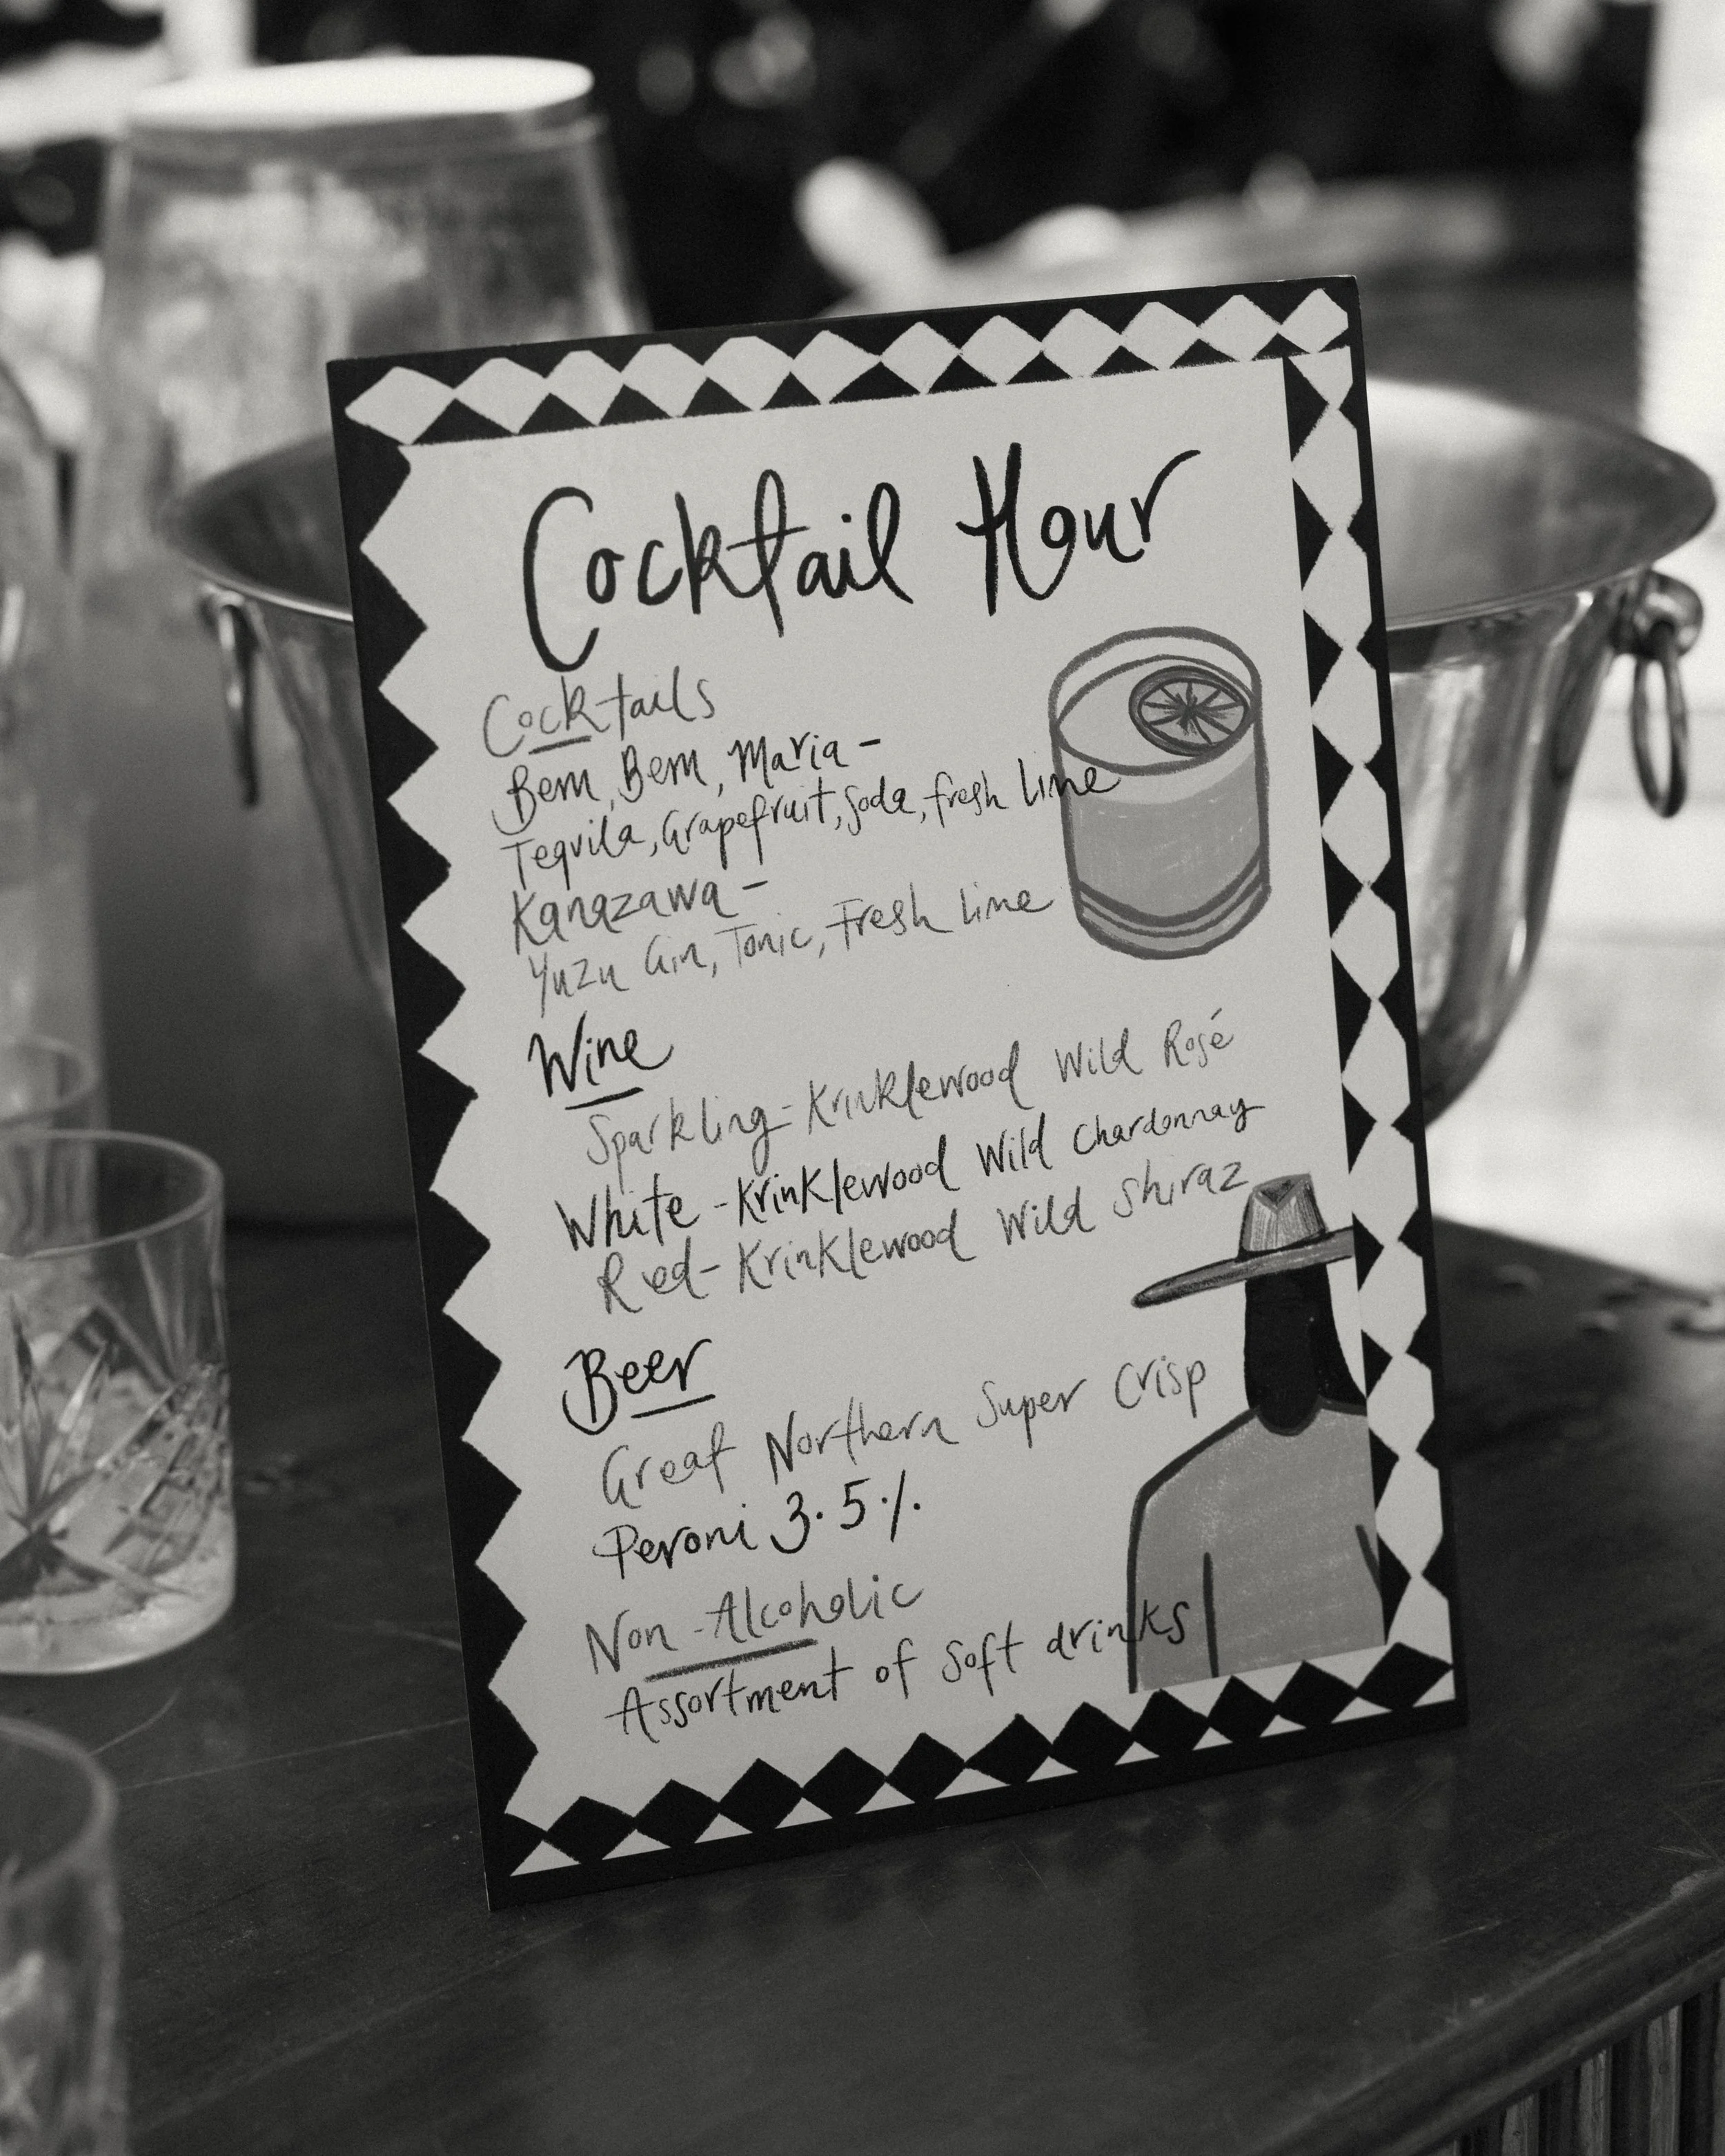 Cocktail Hour
Cocktails
Bem, Bem, Maria -
Tequila, Grapefruit, Soda, fresh lime
Kanazawa -
Yuzu Gin, Tonic, Fresh lime
Wine
Sparkling - Krinklewood Wild Rosé
White - Krinklewood Wild Chardonnay
Red - Krinklewood Wild Shiraz
Beer
Great Northern Super Crisp
Peroni 3.5%
Non-Alcoholic
Assortment of Soft drinks